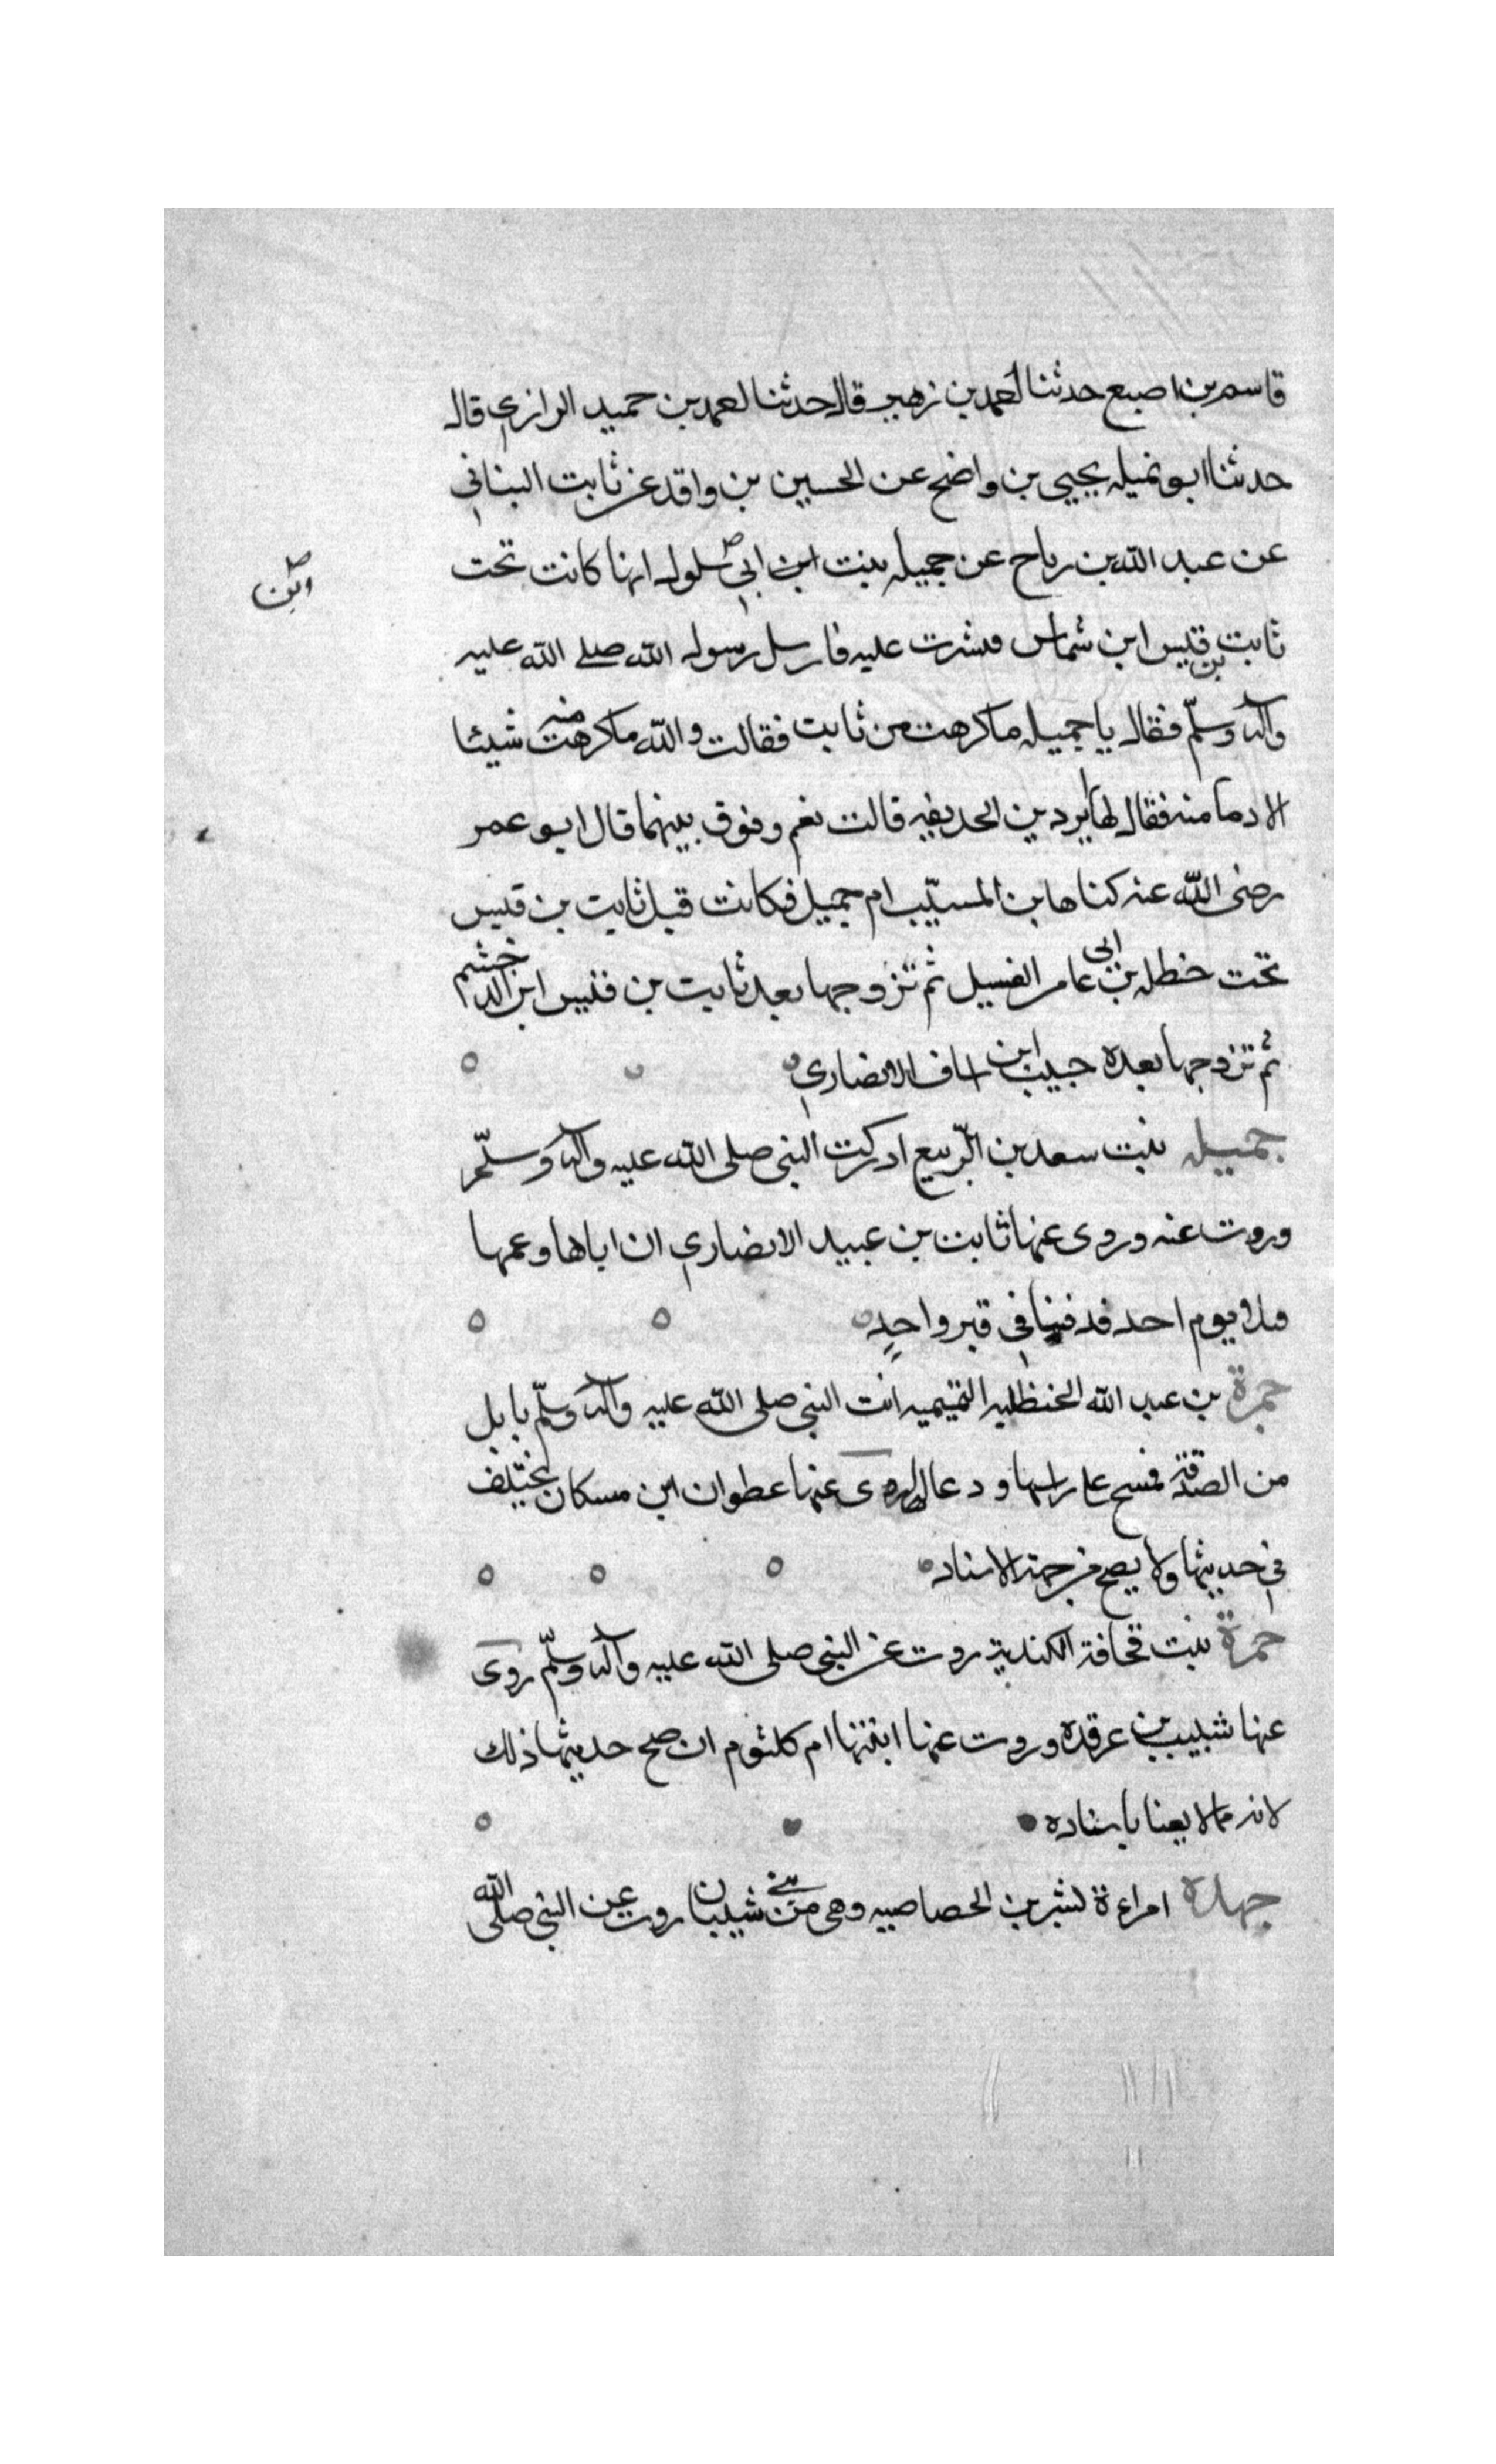 قاسم بن اصبع حدثنا احمد بن زهير قال حدثنا محمد بن حميد الرازي قال
حدثنا ابو نميله يحيى بن واضح عن الحسين بن واقد عن ثابت البناني
عن عبد الله بن رباح عن جميله بنت ابن ابي سلول انها كانت تحت
ابن
ثابت بن قيس ابن شماس فنشزت عليه فارسل رسول الله صلى الله عليه
وآله وسلّم فقال يا جميله ما كرهت من ثابت فقالت والله ما كرهت منه شيئا
الا دمامنه فقال لها تردين الحديقه قالت نعم وفوق بينهما قال ابو عمر
رضى الله عنه كناها بن المسيّب ام جميل فكانت قبل ثابت بن قيس
تحت حنظله بن ابى عامر الغسيل ثم تزوجها بعد ثابت بن قيس ابن الدخشم
ثم تزوجها بعده حبيب ابن اساف الانصاري
جميله بنت سعد بن الرّبيع ادركت النبى صلى الله عليه وآله وسلّم
وروت عنه وروى عنها ثابت بن عبيد الانصاري ان اباها وعمها
قتلا يوم احد فدفنا في قبر واحدٍ
جمرة بن عبد الله الحنظليه التميميه اتت النبى صلى الله عليه وآله وسلّم بابل
من الصدقة فمسح على راسها ودعا لها روى عنها عطوان ابن مسكان يختلف
في حديثها ولا يصح من جهة الاسناد
جمرة بنت قحافة الكندية روت عن النبى صلى الله عليه وآله وسلّم روى
عنها شبيب بن عرقده وروت عنها ابنتها ام كلثوم ان صح حديثها ذلك
لانه مما لا يعنا باسناده
جهدة امراءة لبشر بن الخصاصيه وهى من بني شيبان روت عن النبى صلى الله